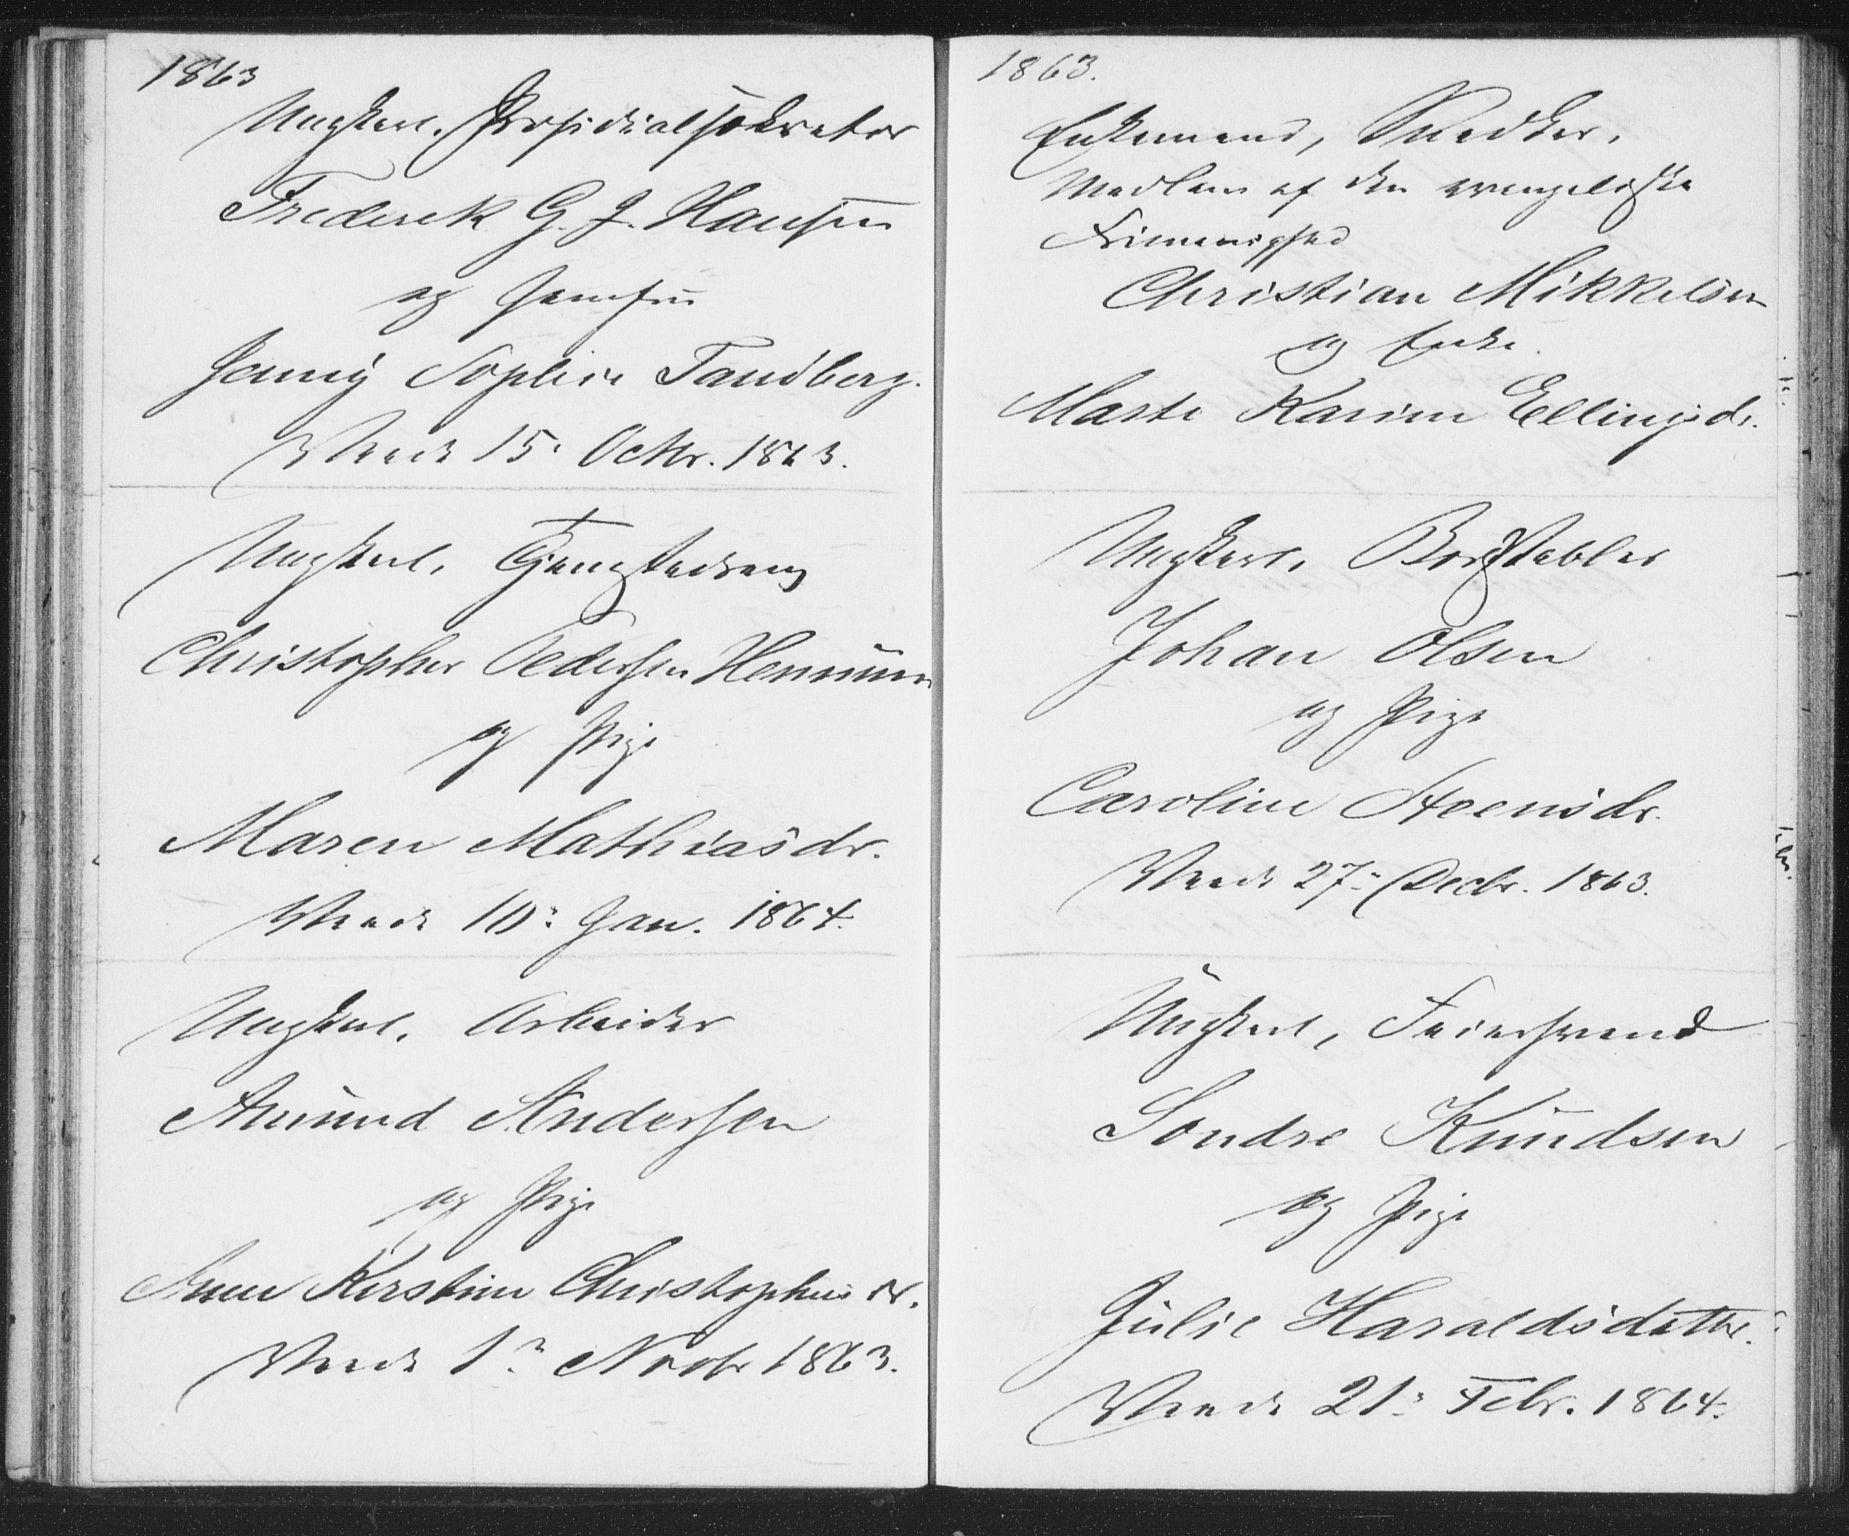 1863
Ungkarl, Præsidialsekretær
Frederik G. J. Hansen
og Jomfru
Jenny Sophie Tandberg.
Viede 15. Octbr. 1863.
Ungkarl, Tjenestedreng
Christopher Pedersen Hennum
og Pige
Maren Mathiasdr.
Viede 10. Jan. 1864.
Ungkarl, Arbeider
Amund Andersen
og Pige
Anne Kirstine Christophersdr.
Viede 1. Novbr 1863.
1863.
Enkemand, Snedker,
Medlem af den evangeliske
Frimenighed
Christian Mikkelsen
og Enke
Marte Karine Ellingsdr.
Ungkarl,
Johan Olsen
og Pige
Caroline Steensdr.
Viede 27. Decbr. 1863.
Ungkarl, Feiersvend
Sondre Knudsen
og Pige
Julie Haraldsdatter.
Viede 21. Febr. 1864.